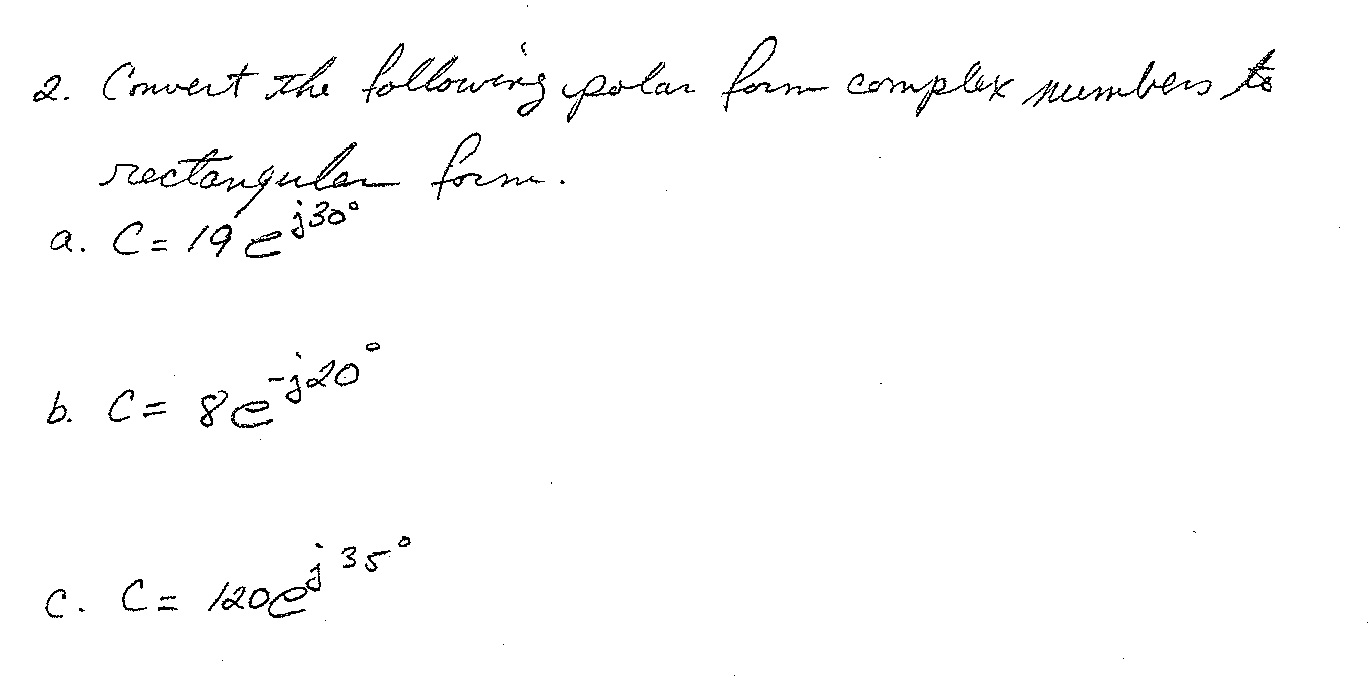 2. Convert the following polar form complex numbers to
rectangular form.
a. C = 19 e^j30°
b. C = 8e^-j20°
c. C = 120e^j35°